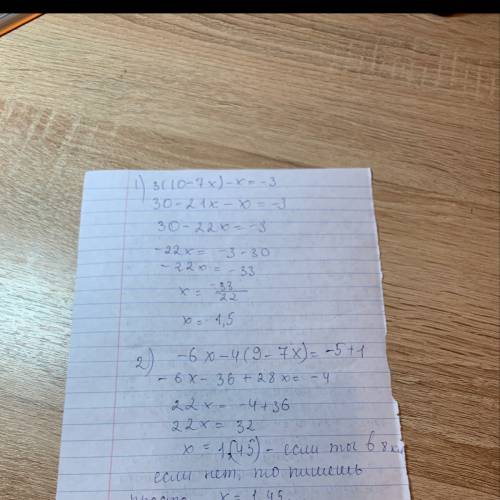 1) 3(10-7x)-x=-3
30-21x-x=-3
30-22x=-3
-22x= -3-30
-22x= -33
x= -33/22
x=-1,5
2) -6x-4(9-7x)=-5+1
-6x-36+28x=-4
22x= -4+36
22x= 32
x= 1,(45) - если ты в 8 кл
если нет, то пишешь
просто x=1,45